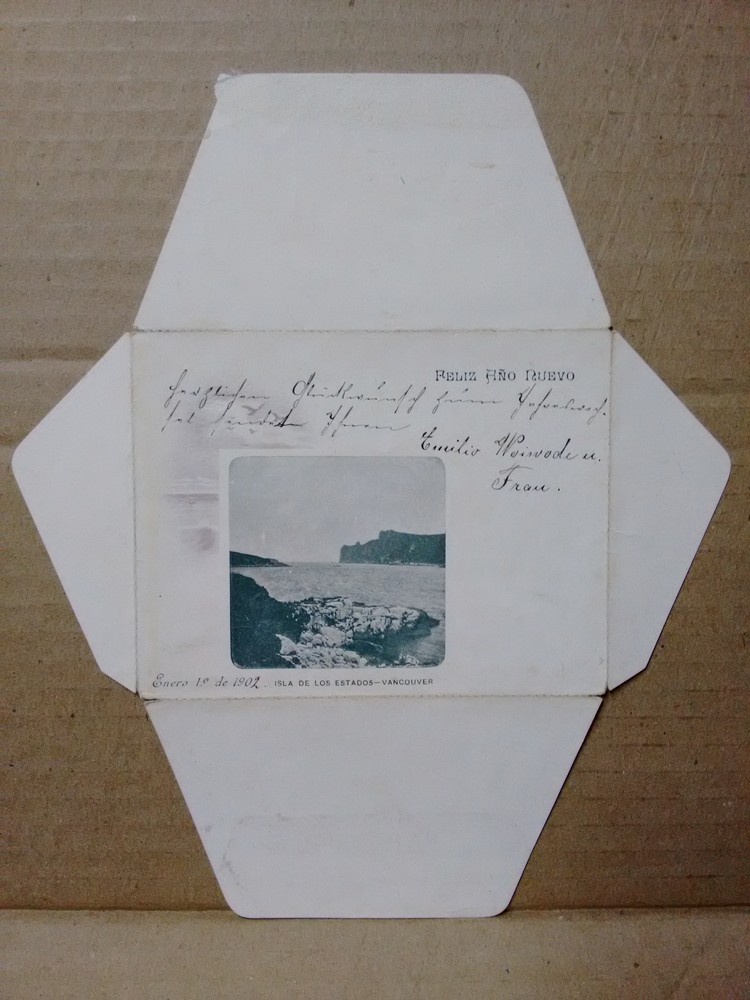 FELIZ AÑO NUEVO
Herzlichen Glückwunsch zum Jahreswech-
sel sendet Ihnen
Emilio Woiwode u.
Frau.
Enero 1º de 1902. ISLA DE LOS ESTADOS—VANCOUVER